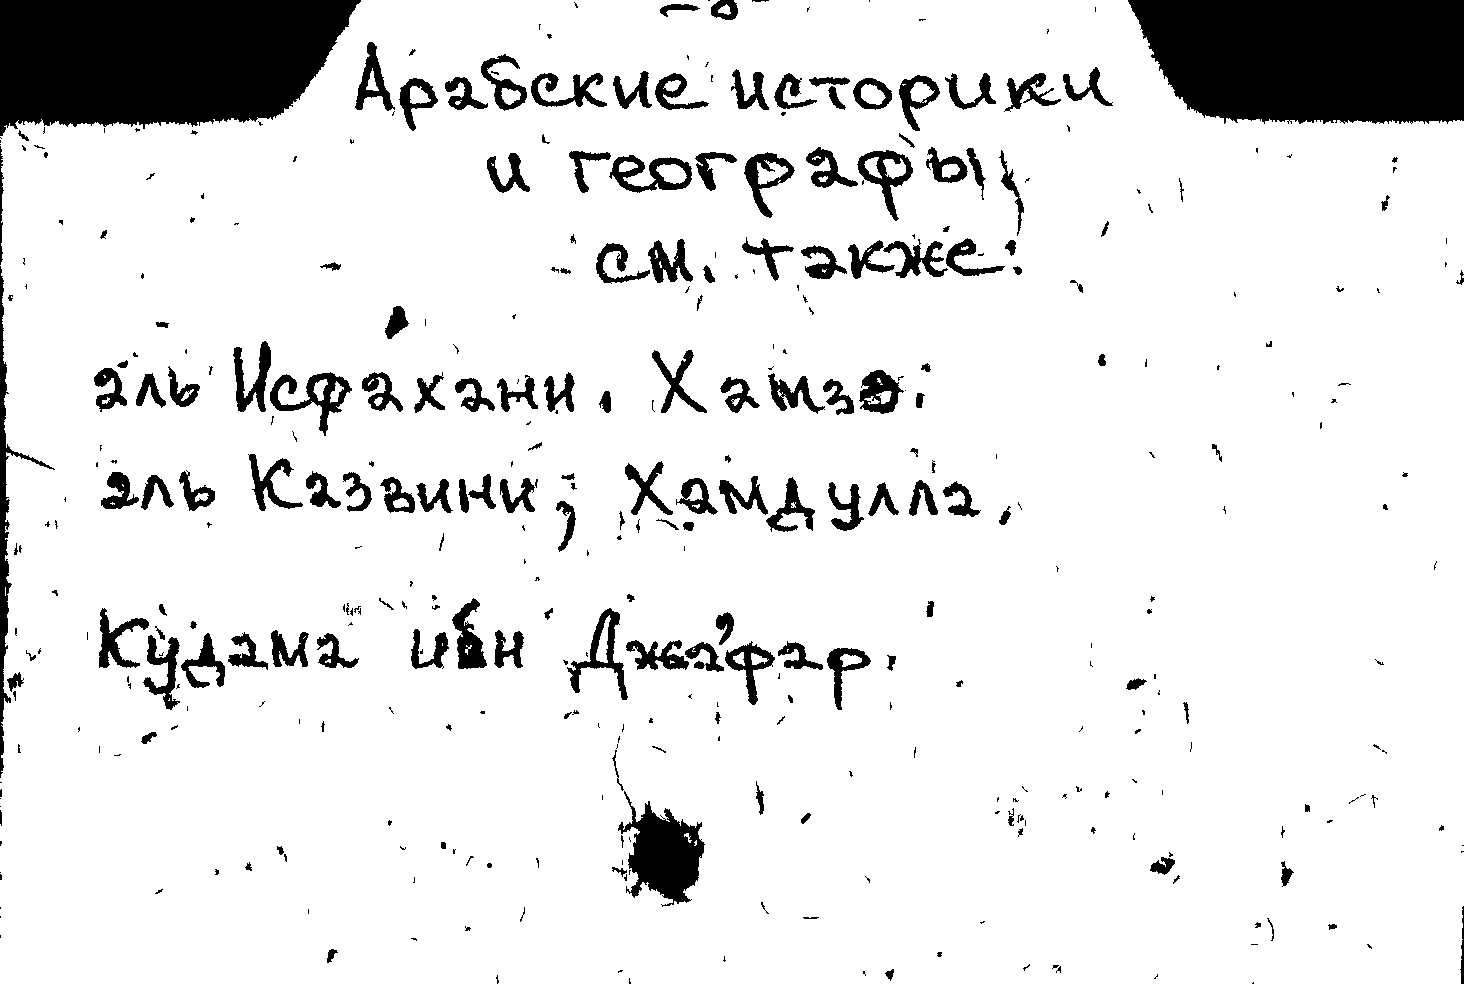 Арабские историки
и географы,
см. также:
аль Исфахани. Хамза.
аль Казвини, Хамдулла.
Кудама ибн Джа'фар.